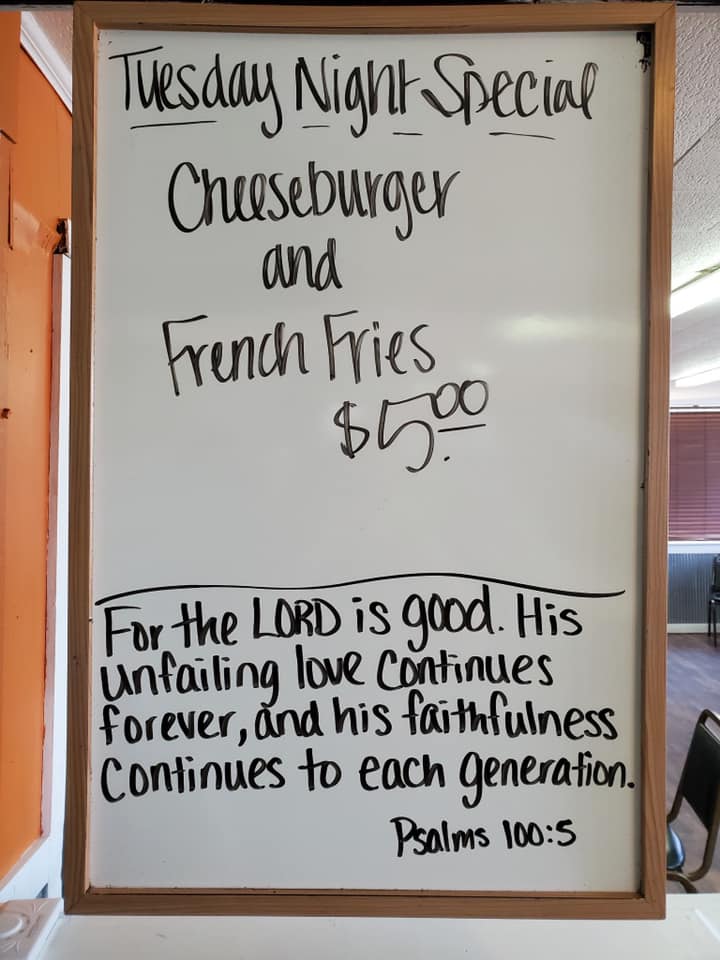 Tuesday Night Special
Cheeseburger
and
French Fries
$5.00
For the LORD is good. His
unfailing love continues
forever, and his faithfulness
continues to each generation.
Psalms 100:5